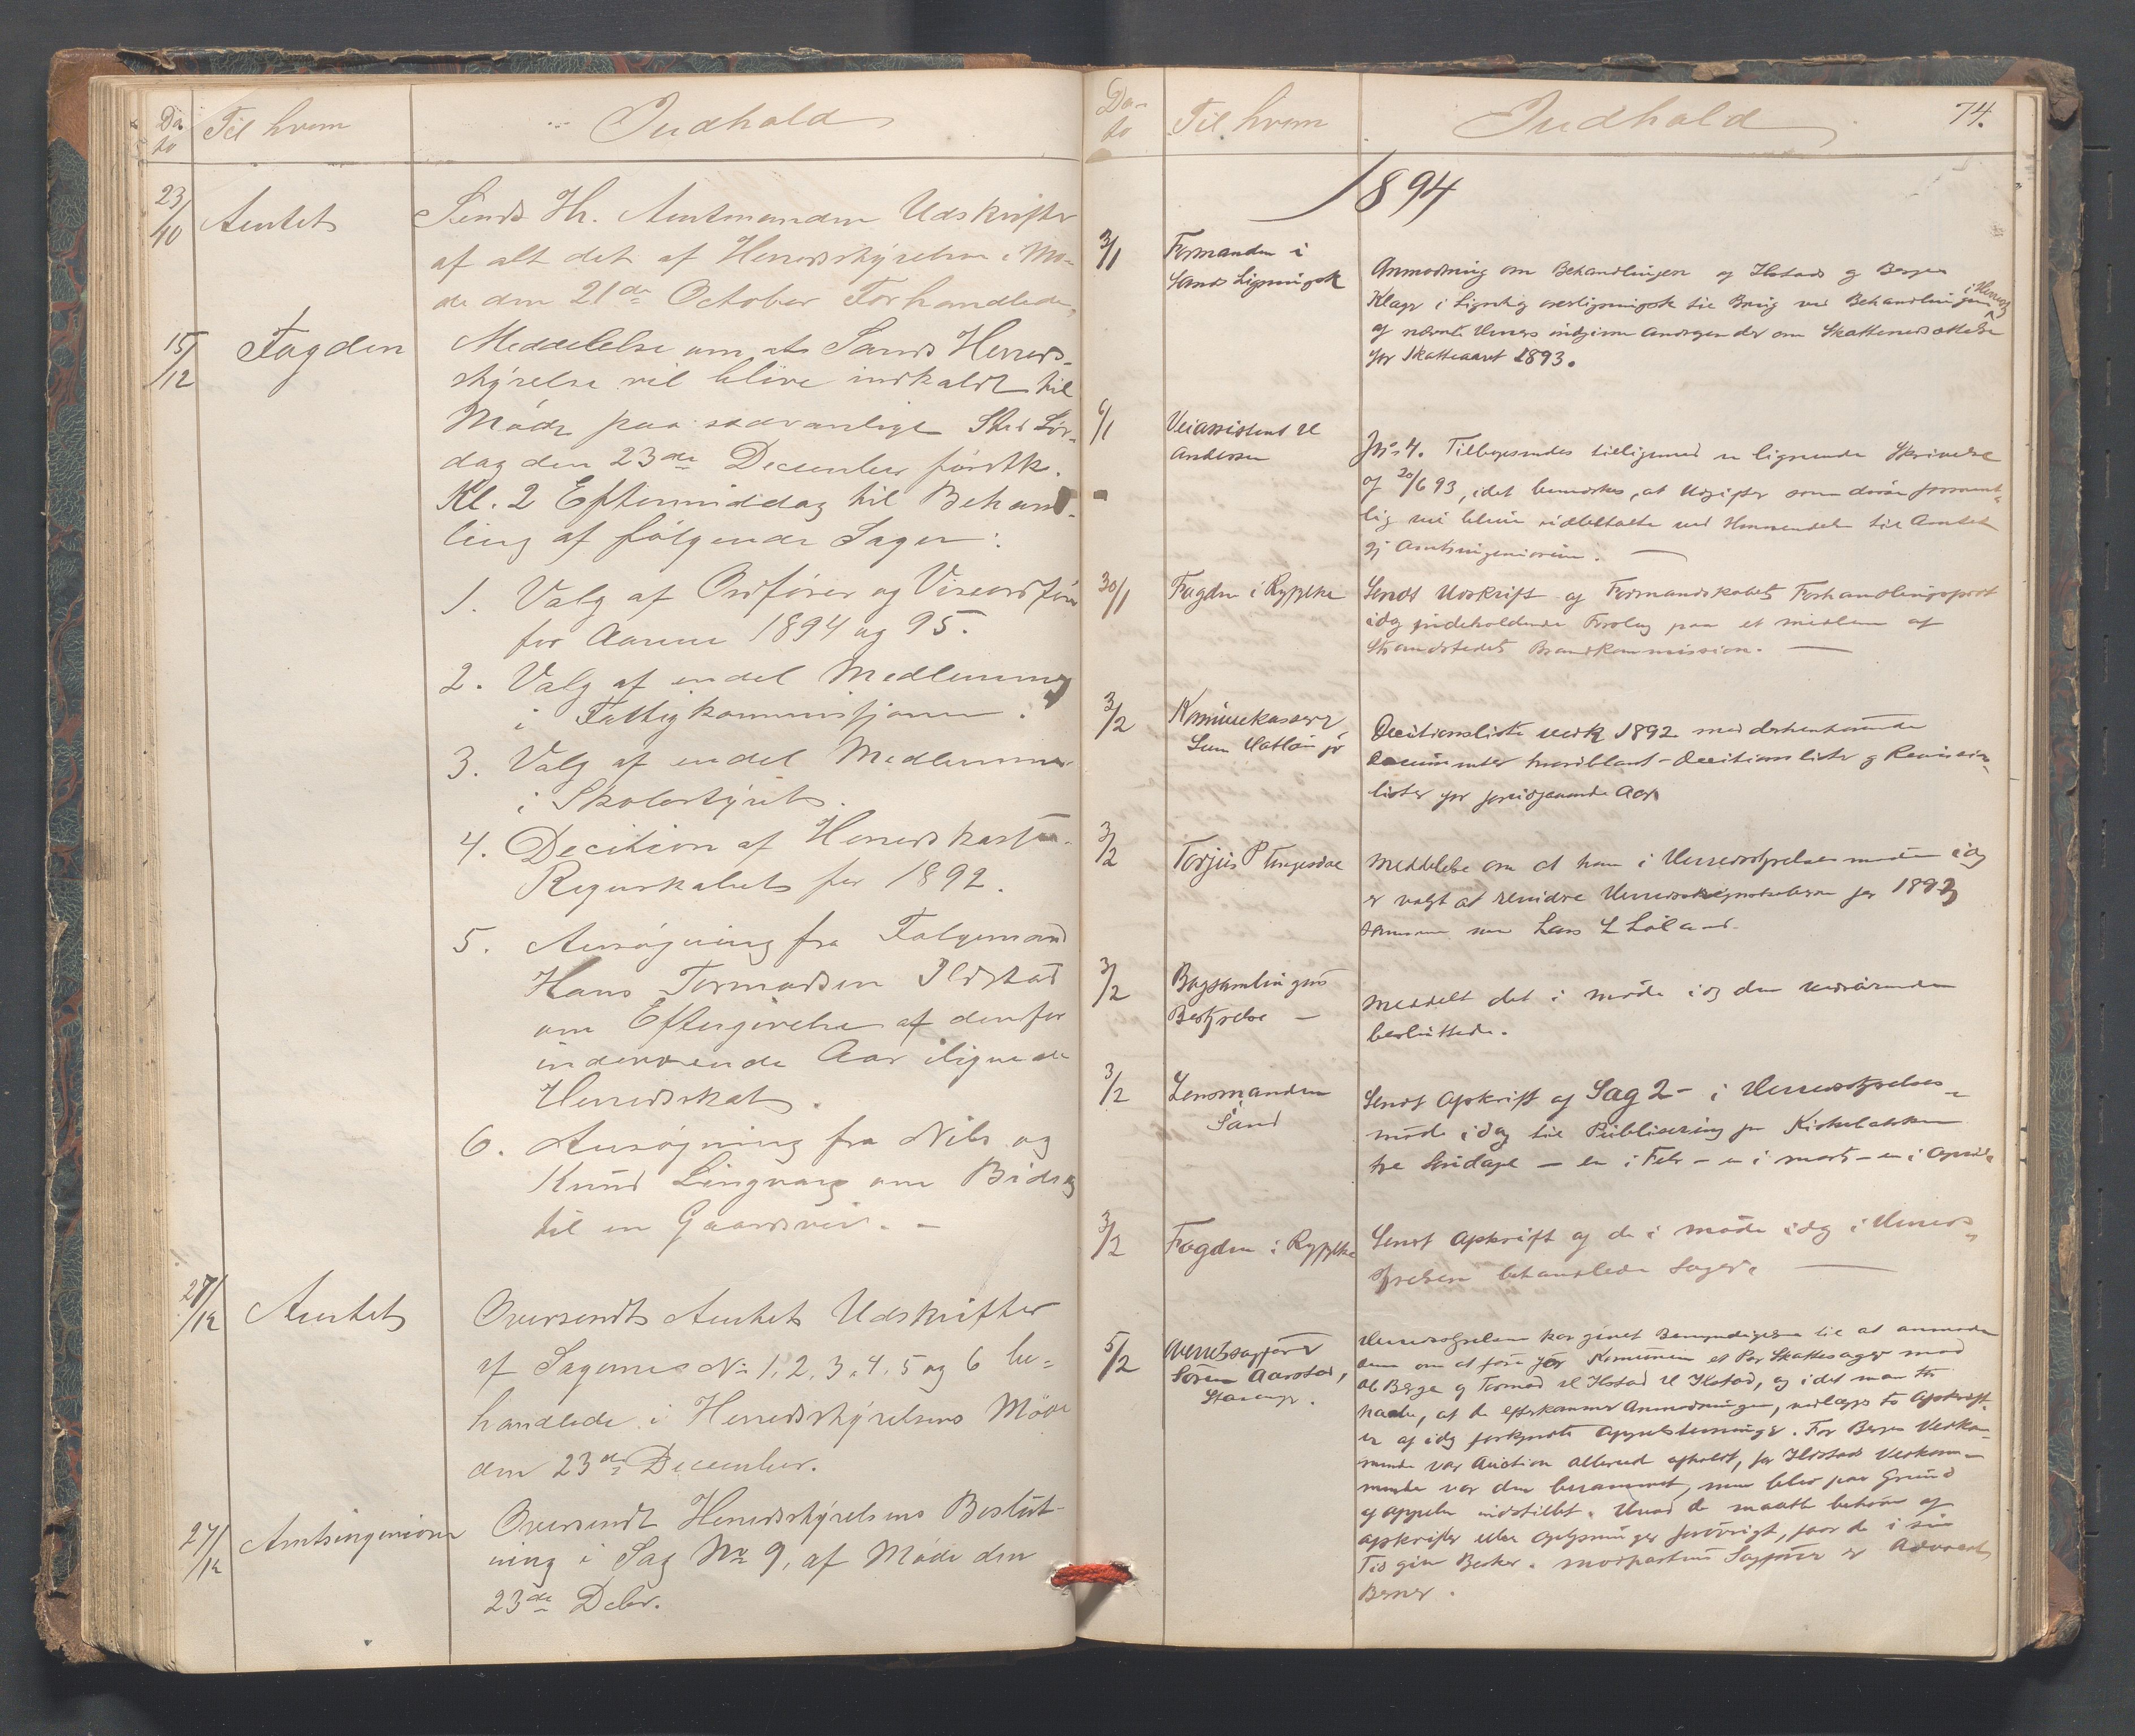 Da-
to
Til hvem
Indhold
23/10
Amtet
Sendt Hr. Amtmanden Udskrifter
af alt det af Herredsstyrelsen i Mö-
de den 21de October Forhandlede,
15/12
Fogden
Meddelelse om at Sands Herreds-
styrelse vil blive indkaldt til
Möde paa sædvanligt Sted Lör-
dag den 23de December förstk.
Kl. 2 Eftermiddag til Behand-
ling af fölgende Sager:
1. Valg af Ordförer og Viceordförer
for Aarene 1894 og 95.
2. Valg af endel Medlemmer
i Fattigkommissjonen.
3. Valg af endel Medlemmer
i Skolestyret.
4. Decition af Herredskasse-
Regnskabet for 1892.
5. Ansögning fra Fölgemand
Hans Tormodsen Ilstad
om Eftergivelse af den for
indeværende Aar ilignede
Herredsskat.
6. Ansögning fra Nils og
Knud Lingvang om Bidrag
til en Gaardsvei. -
27/12
Amtet
Oversendt Amtet Udskrifter
af Sagerne No 1, 2, 3, 4, 5 og 6 be-
handlede i Herredsstyrelsens Möde
den 23de December.
27/12
Amtsingeniören
Oversendt Herredsstyrelsens Beslut-
ning i Sag No 9, af Möde den
23de Decbr.
Da-
to
Til hvem
Indhold
74.
1894
3/1
Formanden i
Sands Ligningsk
Anmodning om Behandlingen af Ilstads og Berges
Klager i Lignings og overligningsk til Brug ved Behandlingen i Herredst
af nævnte Herrers indgivne Andragender om Skattenedsættelse
for Skatteaaret 1893.
6/1
Veiassistent
Andersen
Jr.No 4. Tilbagesendes tilligemed en lignende Skrivelse
af 20/6 93, idet bemærkes, at Udgifter som disse forment-
lig vil blive udbetalte ved Henvendelse til Amtet
gj Amtsingeniören. —
30/1
Fogden i Ryfylke
Sendt Udskrift af Formandskabets Forhandlingsprot
idag indeholdende Forslag paa et medlem af
Strandstedets Brandkommission. —
3/2
Kommunekasserer
Decitionsliste vedk 1892 med dertil henhörende
Documenter hvoriblant Decitionslister og Revisions-
lister for foregaaende Aar
3/2
Torjus P Tengesdal
Meddelelse om at han i Herredsstyrelsesmöde idag
er valgt at revidere Herredsregnskaberne for 1893
sammen med Lars L Löland.
3/2
Bogsamlingens
Bestyrelse —
Meddelt det i möde idag den vedrörende
besluttede.
3/2
Lensmanden
i
Sand
Sendt Afskrift af Sag 2 - i Herredsstyrelses-
möde idag til Publisering fra Kirkebakken
tre Söndage — en i Febr - en i marts - en i April.
3/2
Fogden i Ryfylke
Sendt Afskrift af de i möde idag i Herreds-
styrelsen behandlede Sager. —
5/2
Overretssagförer
Sören Aarstad,
Stavanger.
Herredsstyrelsen har givet Bemyndigelse til at anmode
Dem om at före for Kommunen et Par Skattesager mod
Berge og Tormod Ilstad, og idet man tör
haabe, at De efterkommer Anmodningen, vedlægges to Afskrift-
er af idag forkyndte Appelstevninger. For Berges Vedkom-
mende var Auction allerede afholdt, for Ilstads Vedkom-
mende var den berammet, men blev paa Grund
af appellen indstillet. Hvad De maatte behöve af
Afskrifter eller Oplysninger forövrigt, faar De i sin
Tid give Besked. Modpartens Sagförer er Advocat
Berner.